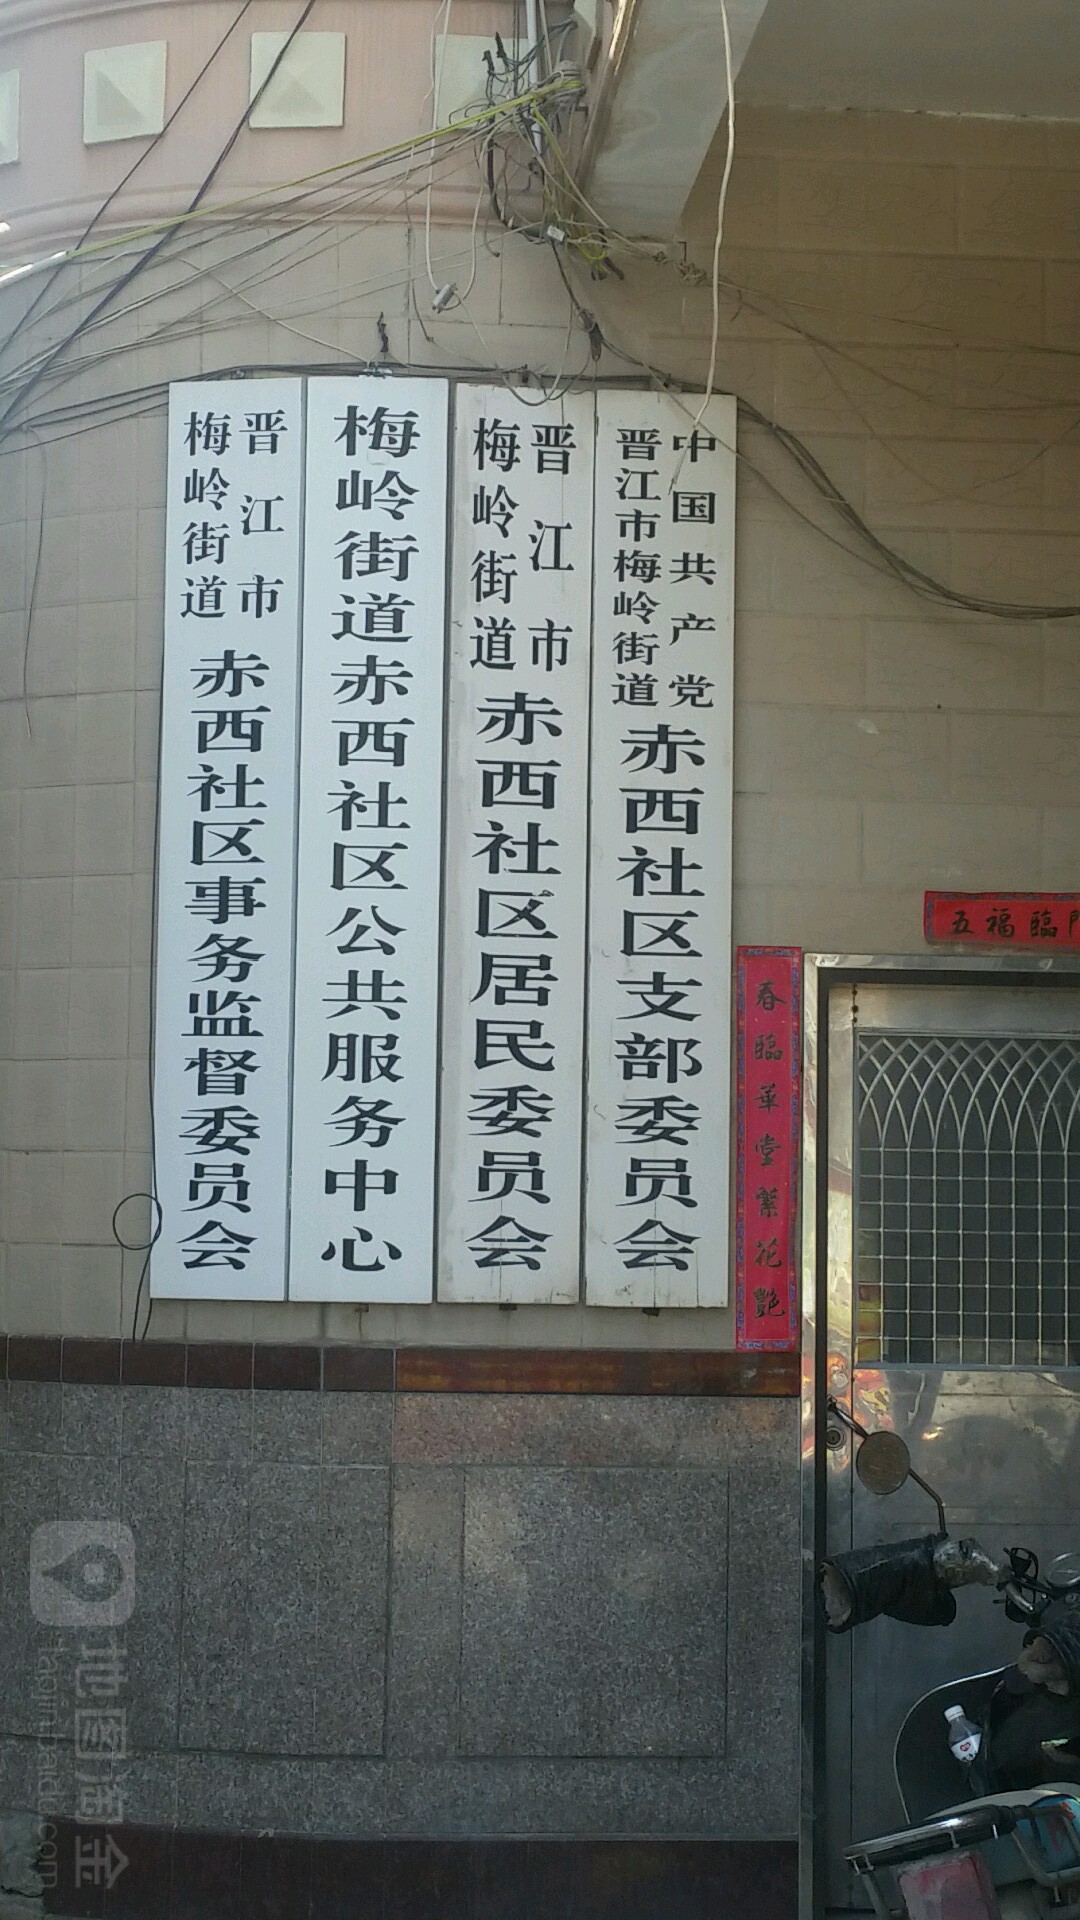 晋江市
梅岭街道
赤西社区事务监督委员会
梅岭街道赤西社区公共服务中心
晋江市
梅岭街道
赤西社区居民委员会
中国共产党
晋江市梅岭街道
赤西社区支部委员会
五福臨門
春臨華堂繁花艷
地图淘金
taojin.baidu.com